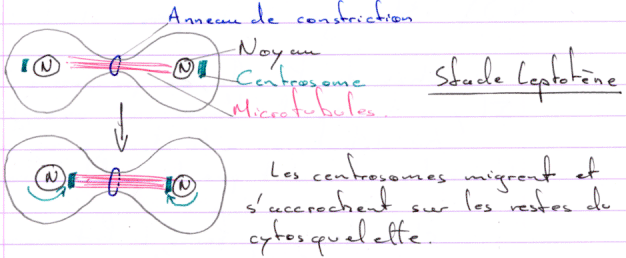 Anneau de constriction
Noyau
Centrosome
Microtubules.
Stade Leptotène
N
N
N
N
Les centrosomes migrent et
s'accrochent sur les restes du
cytosquelette.